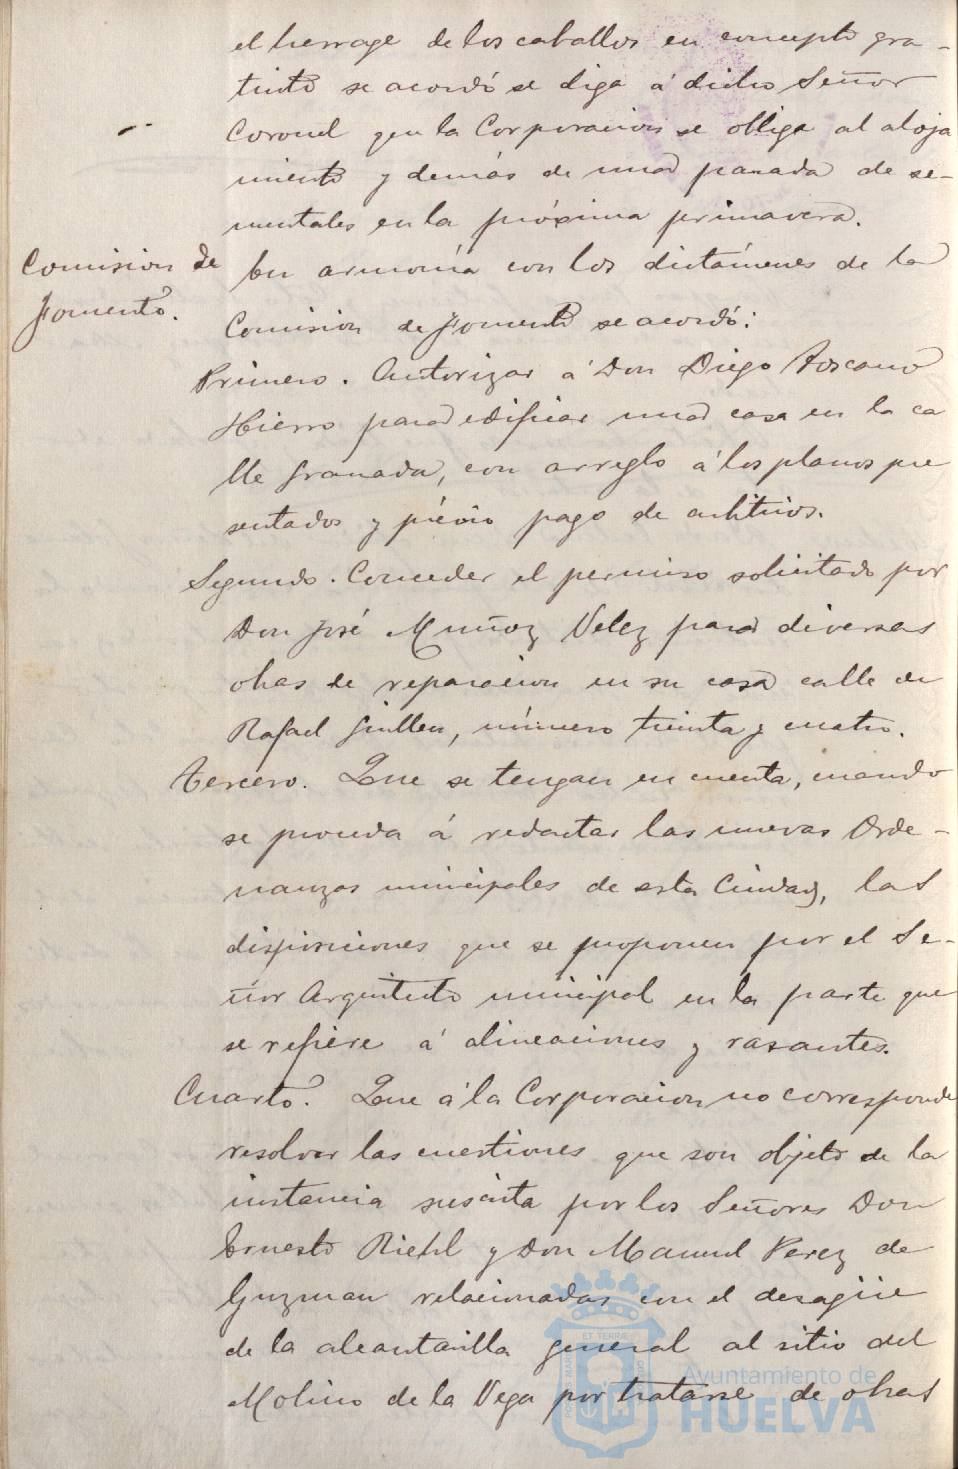 el herrage de los caballos en concepto gra-
tuito se acordó se diga á dicho Señor
Coronel que la Corporacion se obliga al aloja
miento y demás de una parada de se-
mentales en la próxima primavera.
Comision de
Fomento.
En armonía con los dictámenes de la
Comision de Fomento se acordó:
Primero. Autorizar á Don Diego Toscano
Hierro para edificar una casa en la ca
lle Granada, con arreglo á los planos pre
sentados y prévio pago de arbitrios.
Segundo. Conceder el permiso solicitado por
Don José Muñoz Velez para diversas
obras de reparacion en su casa calle de
Rafael Guillen, número treinta y cuatro.
Tercero. Que se tengan en cuenta, cuando
se proceda á redactar las nuevas Orde-
nanzas municipales de esta Ciudad, las
disposiciones que se proponen por el Se-
ñor Arquitecto municipal en la parte que
se refiere á alineaciones y rasantes.
Cuarto. Que á la Corporacion no corresponde
resolver las cuestiones que son objeto de la
instancia suscrita por los Señores Don
Ernesto Riehl y Don Manuel Perez de
Guzman relacionadas con el desagüe
de la alcantarilla general al sitio del
Molino de la Vega por tratarse de obras
Ayuntamiento de
HUELVA